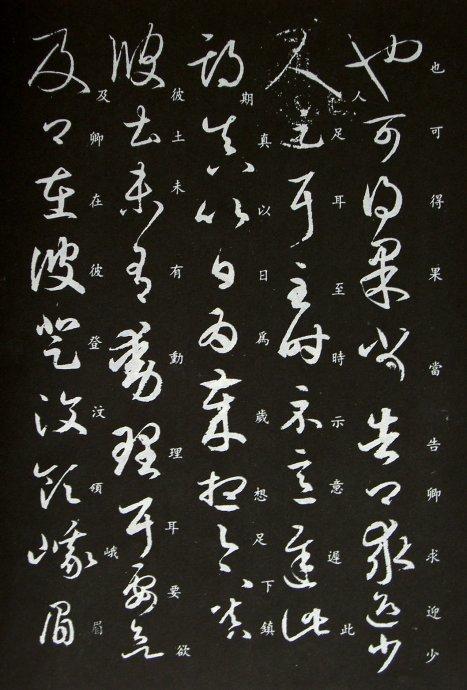 也可得果當告卿求迎少
人足耳至時示意遲此
期真以日爲歲想足下鎮
彼土未有動理耳要欲
及卿在彼登汶領峨眉